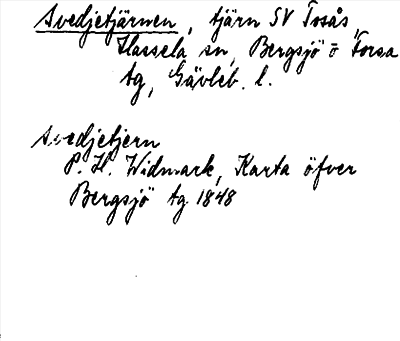 Svedjetjärnen, tjärn SV Tosås,
Hassela sn, Bergsjö o Forsa
tg, Gävleb. l.
Svedjetjern
P. H. Widmark, Karta öfver
Bergsjö tg 1848